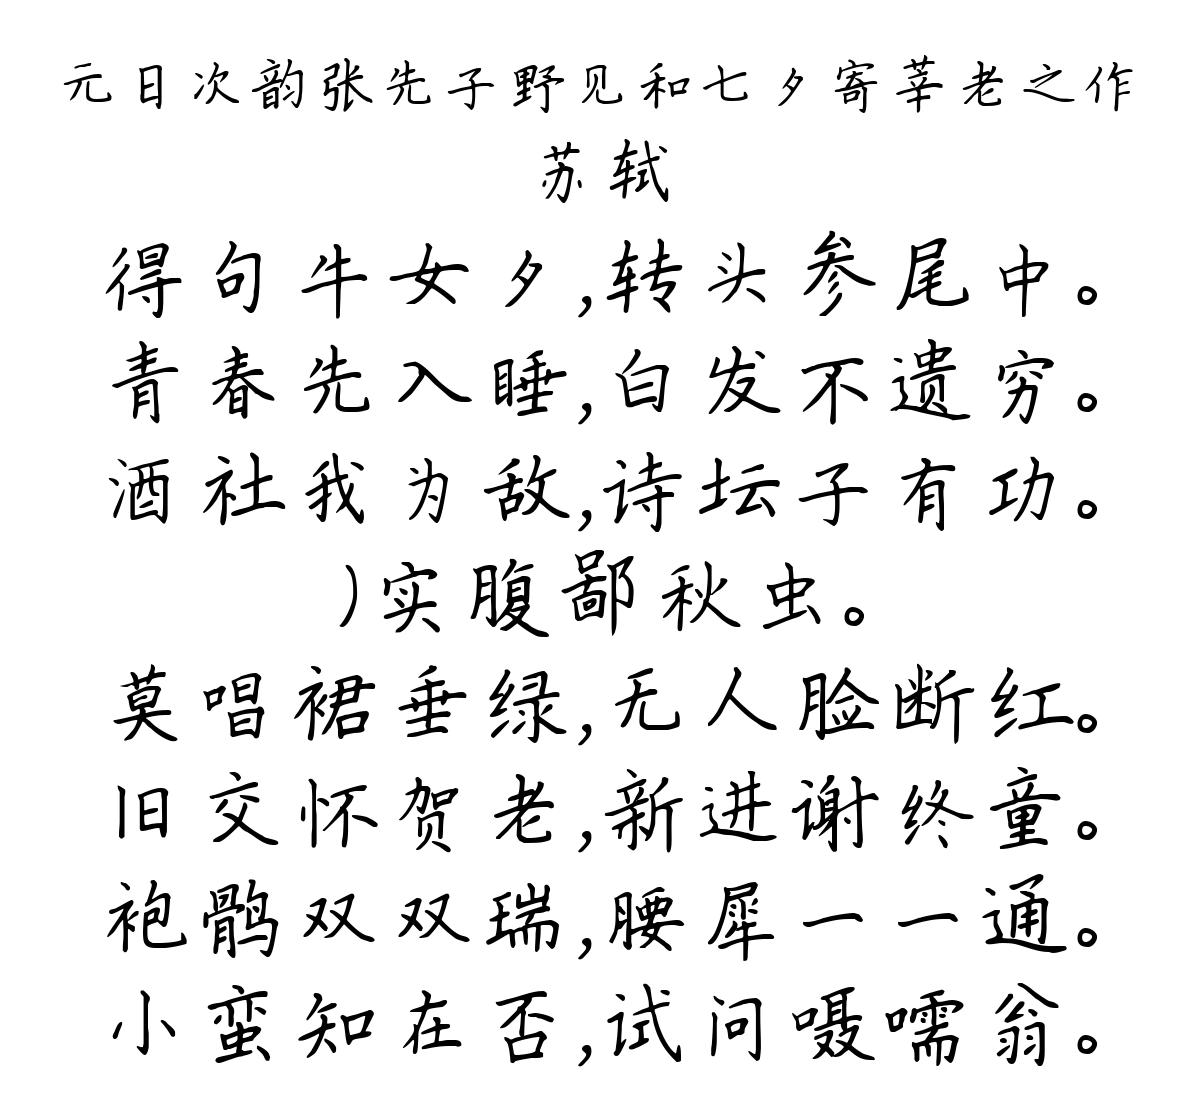 元日次韵张先子野见和七夕寄莘老之作
苏轼
得句牛女夕,转头参尾中。
青春先入睡,白发不遗穷。
酒社我为敌,诗坛子有功。
)实腹鄙秋虫。
莫唱裙垂绿,无人脸断红。
旧交怀贺老,新进谢终童。
袍鹘双双瑞,腰犀一一通。
小蛮知在否,试问嗫嚅翁。